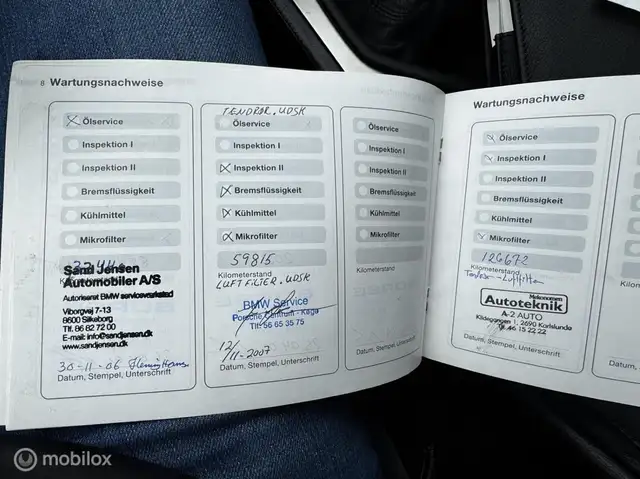 8 Wartungsnachweise
Ölservice
Inspektion I
Inspektion II
Bremsflüssigkeit
Kühlmittel
Mikrofilter
Sand Jensen
Automobiler A/S
Autoriseret BMW serviceværksted
Viborgvej 7-13
8600 Silkeborg
Tlf. 86 82 72 00
E-mail: info@sandjensen.dk
www.sandjensen.dk
30-11-06
Datum, Stempel, Unterschrift
TENDRØR.UDSK
Ölservice
Inspektion I
Inspektion II
Bremsflüssigkeit
Kühlmittel
Mikrofilter
59815
Kilometerstand
LUFTFILTER.UDSK
BMW Service
Porsche Zentrum - Køge
Tlf. 56 65 35 75
12/11-2007
Datum, Stempel, Unterschrift
Ölservice
Inspektion I
Inspektion II
Bremsflüssigkeit
Kühlmittel
Mikrofilter
Kilometerstand
Datum, Stempel, Unterschrift
Wartungsnachweise
Ölservice
Inspektion I
Inspektion II
Bremsflüssigkeit
Kühlmittel
Mikrofilter
126672
Kilometerstand
Mekonomen
Autoteknik
A-2 AUTO
Kildegangen 1 · 2690 Karlslunde
Tlf. 46 15 22 22
Datum, Stempel, Unterschrift
mobilox